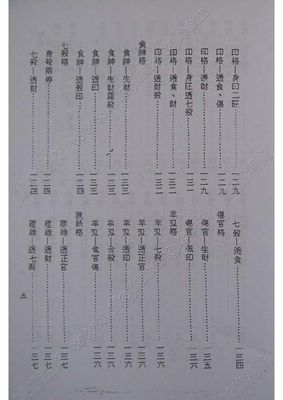 印格—身印二旺……一二九
印格—透食、傷……一二九
印格—透財……一二九
印格—身旺透七殺……一三一
印格—透食、財……一三二
印格—透財殺……一三二
食神格
食神—生財……一三二
食神—生財露殺……一三三
食神—透印……一三三
食神—透殺印……一三三
七殺格
身殺兩停……一三四
七殺—透財……一三四
七殺—透食……一三四
傷官格
傷官—生財……一三五
傷官—佩印……一三六
羊刃格
羊刃—七殺……一三六
羊刃—透正官……一三六
羊刃—透印……一三六
羊刃—合殺……一三六
羊刃—食官傷……一三六
建祿—透正官……一三七
建祿—透財……一三七
建祿—透七殺……一三七
五